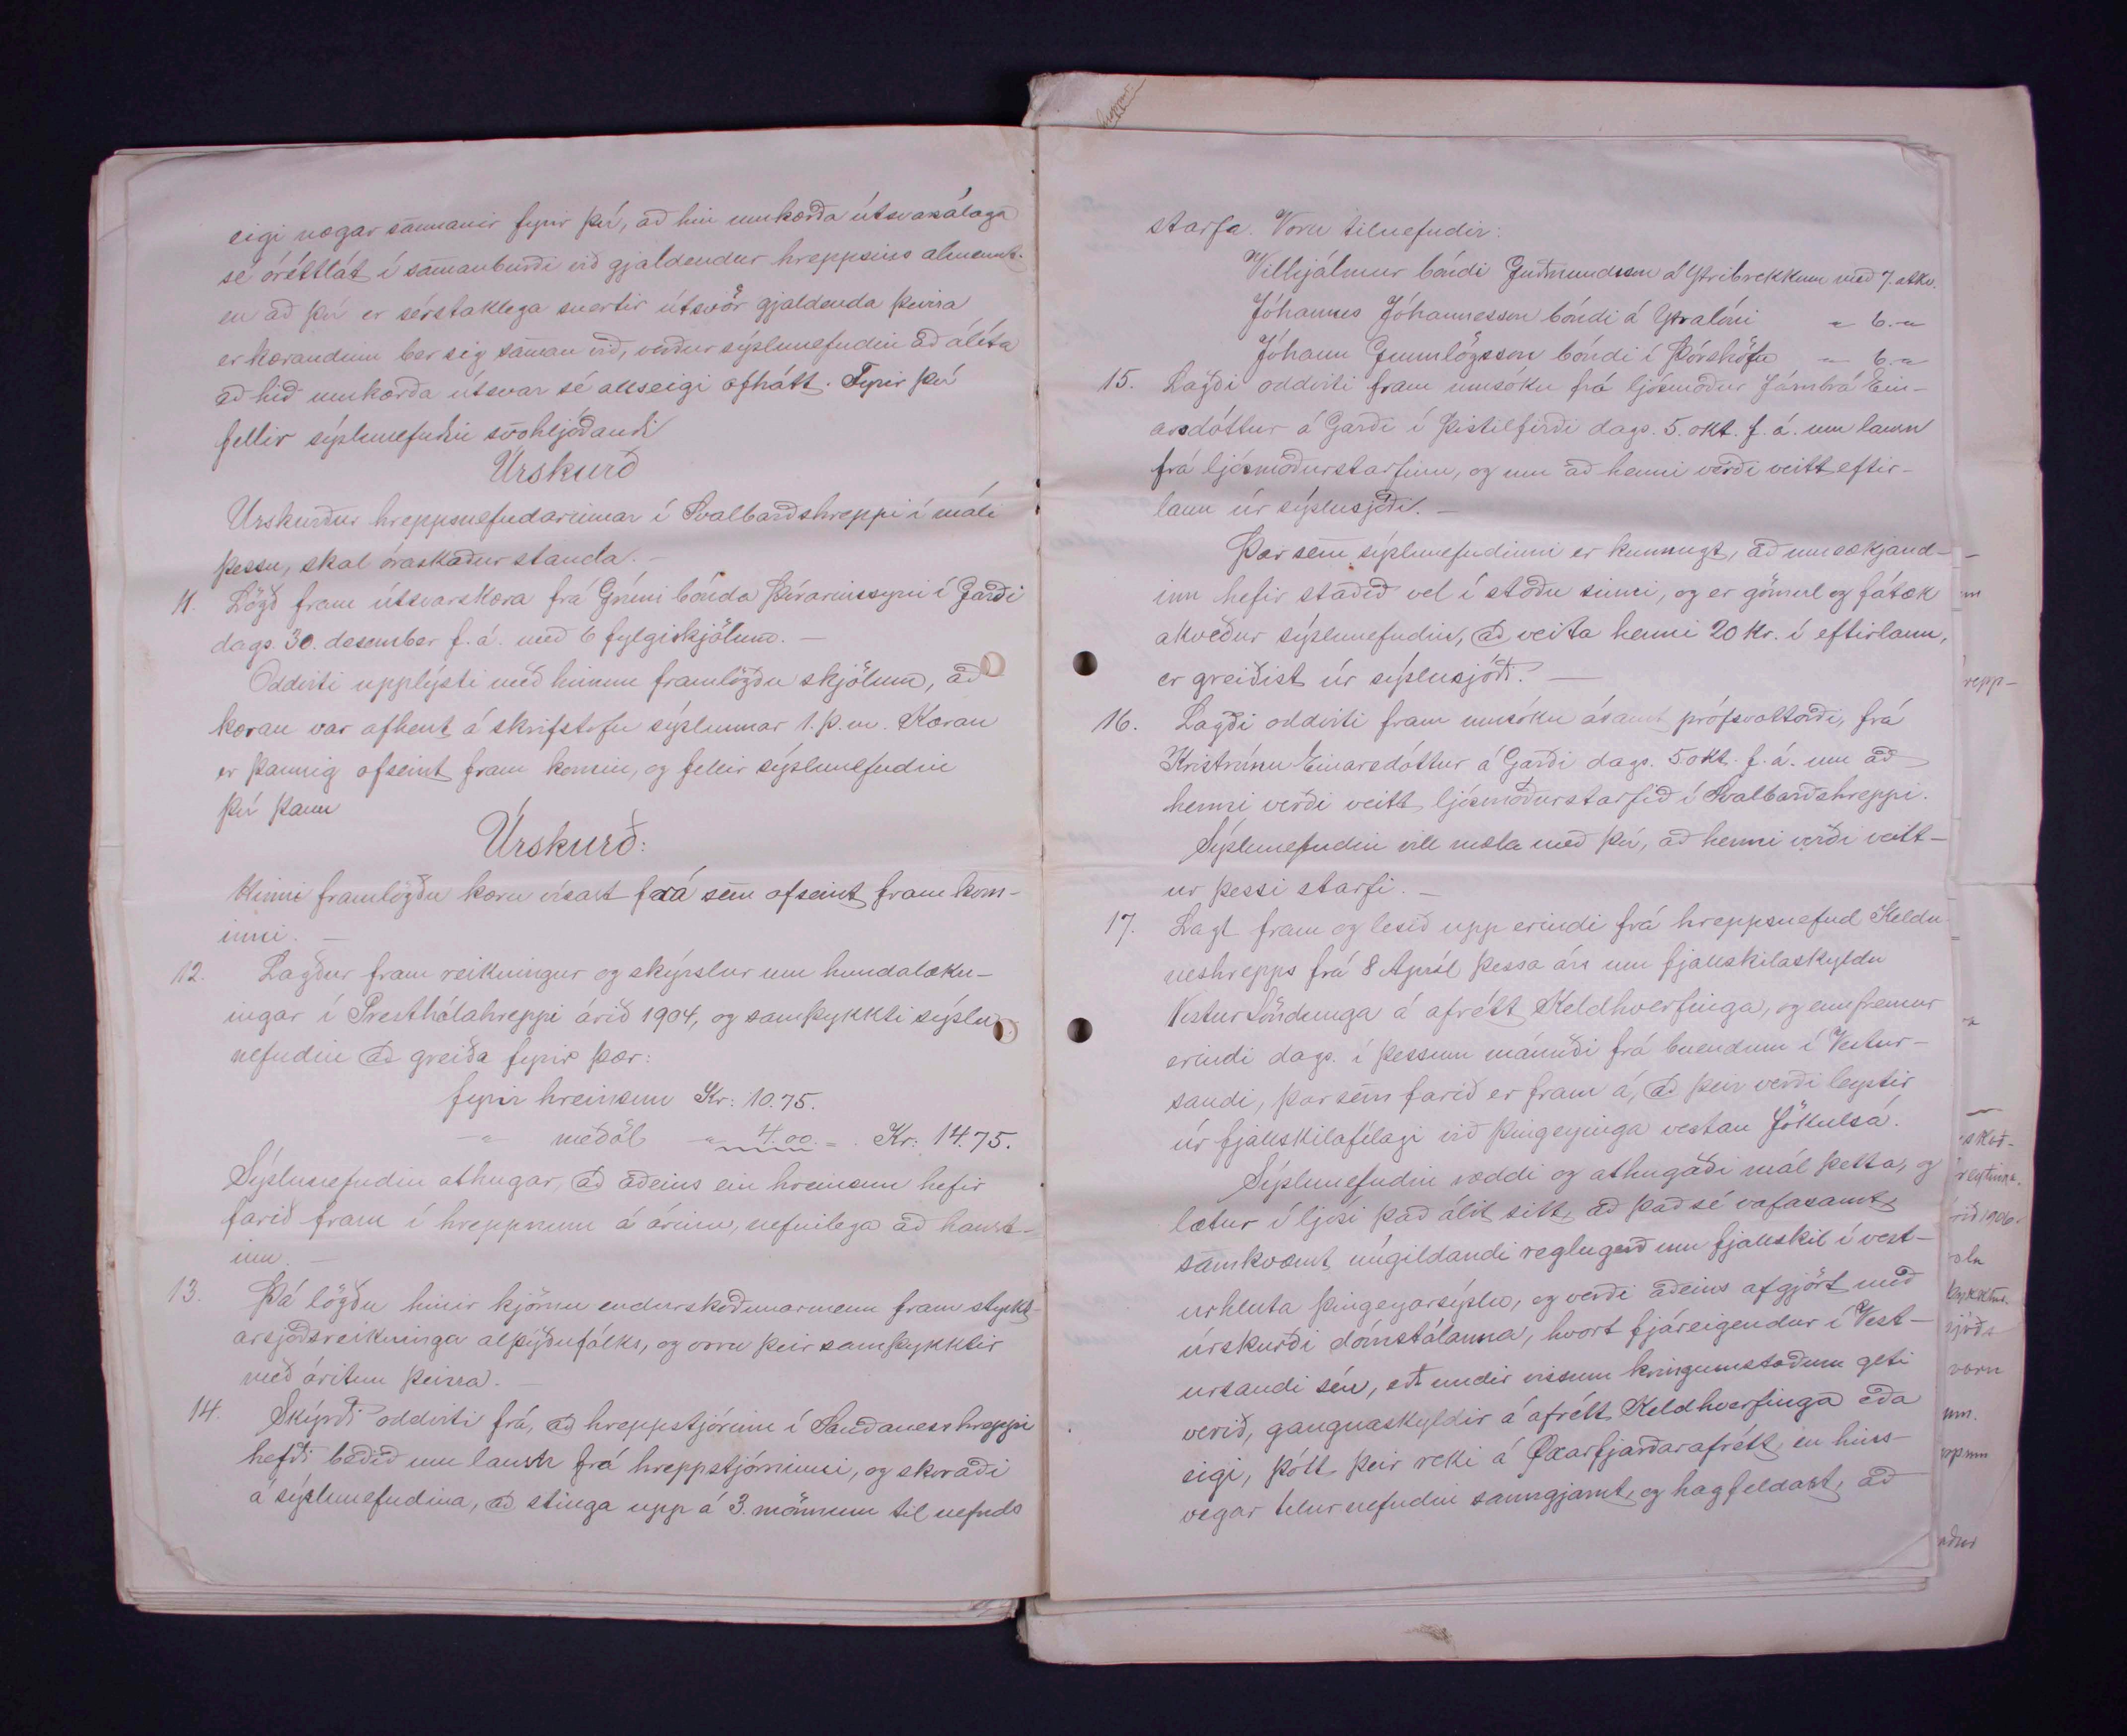 eigi nægar sannanir fyrir því, að hin umkærða útsvarsálaga
sé óréttlát í samanburði við gjaldendur hreppsins almennt.
en að því er sérstaklega snertir útsvör gjaldenda þeirra
er kærandinn ber sig saman við, verður sýslunefndin að álíta
að hið umkærða útsvar sé allseigi ofhátt. Fyrir því
fellir sýslunefndin svohljóðandi
Úrskurð
Úrskurður hreppsnefndarinnar í Svalbarðshreppi í máli
þessu, skal óraskaður standa. –
11. Lögð fram útsvarskæra frá Grími bónda Þórarinssyni í Garði
dags. 30. desember f. á. með 6 fylgiskjölum. –
Oddviti upplýsti með hinum framlögðu skjölum, að
kæran var afhent á skrifstofu sýslunnar 1. þ. m. Kæran
er þannig ofseint fram komin, og fellir sýslunefndin
því þann
Úrskurð:
Hinni framlögðu kæru vísast frá sem ofseint fram kom-
inni. –
12. Lagður fram reikningur og skýrslur um hundalækn-
ingar í Presthólahreppi árið 1904, og samþykkti sýslu
nefndin að greiða fyrir þær:
fyrir hreinsun Kr: 10.75.
–"– meðöl –"– 4.00. = . Kr: 14.75.
Sýslunefndin athugar, að aðeins ein hreinsun hefir
farið fram í hreppnum á árinu, nefnilega að haust-
inu. –
13. Þá lögðu hinir kjörnu endurskoðunarmenn fram styrkt-
arsjóðsreikninga alþýðufólks, og voru þeir samþykktir
með áritun þeirra. –
14. Skýrði oddviti frá, að hreppstjórinn í Sauðaneshreppi
hefði beðið um lausn frá hreppstjórninni, og skoraði
á sýslunefndina, að stinga upp á 3. mönnum til nefnds
starfa. Voru tilnefndir:
Vilhjálmur bóndi Guðmundsson á Ytribrekkum með 7. atkv.
Jóhannes Jóhannesson bóndi á Ytralóni –"– 6. –"–
Jóhann Gunnlögsson bóndi í Þórshöfn –"– 6. –"–
15. Lagði oddviti fram umsókn frá ljósmóður Járnbrá Ein-
arsdóttur á Garði í Þistilfirði dags. 5. okt. f. á. um lausn
frá ljósmóðurstarfinu, og um að henni verði veitt eftir-
laun úr sýslusjóði. –
Þar sem sýslunefndinni er kunnugt, að umsækjand-
inn hefir staðið vel í stöðu sinni, og er gömul og fátæk
ákveður sýslunefndin, að veita henni 20 kr. í eftirlaun,
er greiðist úr sýslusjóði. –
16. Lagði oddviti fram umsókn ásamt prófsvottorði, frá
Kristrúnu Einarsdóttur á Garði dags. 5 okt. f. á. um að
henni verði veitt ljósmóðurstarfið í Svalbarðshreppi.
Sýslunefndin vill mæla með því, að henni verði veitt-
ur þessi starfi. –
17. Lagt fram og lesið upp erindi frá hreppsnefnd Keldu
neshrepps frá 8 Apríl þessa árs um fjallskilaskyldu
Vestur Söndunga á afrétt Keldhverfinga, og ennfremur
erindi dags. í þessum mánuði frá búendum í Vestur-
sandi, þar sem farið er fram á, að þeir verði leystir
úr fjallskilafélagi við Þingeyinga vestan Jökulsá.
Sýslunefndin ræddi og athugaði mál þetta, og
lætur í ljósi það álit sitt, að það sé vafasamt,
samkvæmt núgildandi reglugerð um fjallskil í vest-
urhluta Þingeyarsýslu, og verði aðeins afgjört með
úrskurði dómstólanna, hvort fjáreigendur í Vest-
ursandi séu, eða undir vissum kringumstæðum geti
verið, gangnaskyldir á afrétt Keldhverfinga eða
eigi, þótt þeir reki á Öxarfjarðarafrétt, en hins-
vegar telur nefndin sanngjarnt, og hagfeldast, að